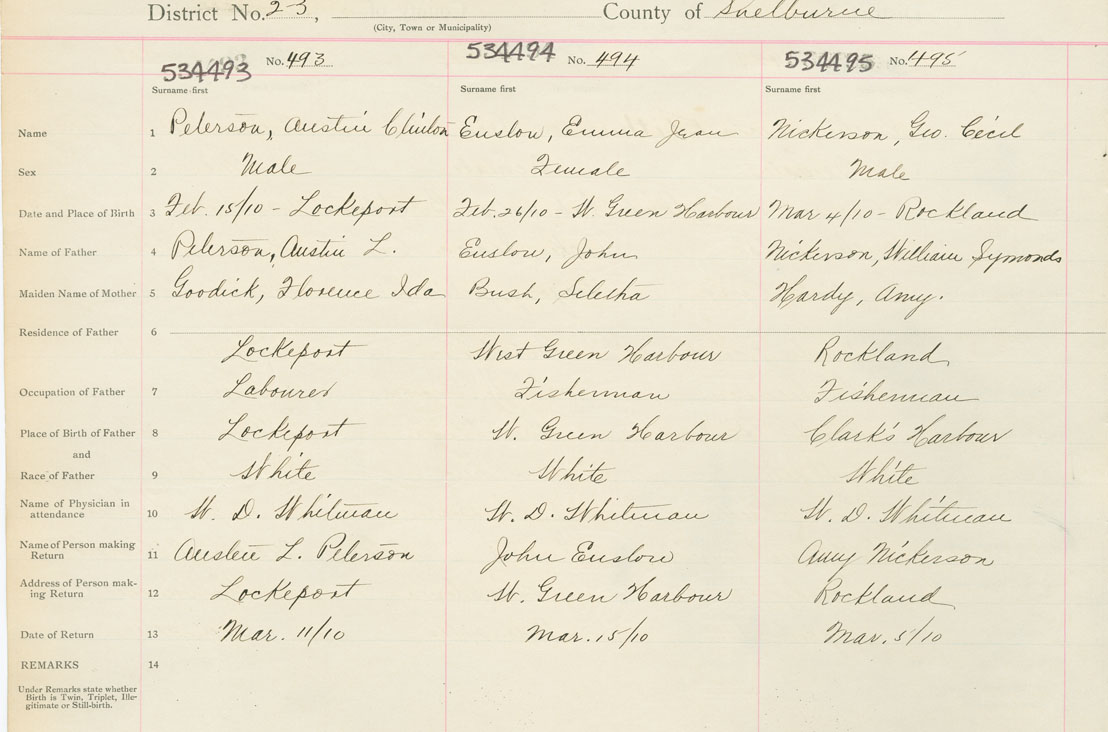 District No. 23, County of Shelburne
(City, Town or Municipality)
534493 No. 493 534494 No. 494 534495 No. 495
Surname first Surname first Surname first
Name 1 Peterson, Austin Clinton Enslow, Emma Jean Nickerson, Geo. Cecil
Sex 2 Male Female Male
Date and Place of Birth 3 Feb. 15/10 - Lockeport Feb. 26/10 - W. Green Harbour Mar 4/10 - Rockland
Name of Father 4 Peterson, Austin L. Enslow, John Nickerson, William Symonds
Maiden Name of Mother 5 Goodick, Florence Ida Bush, Seletha Hardy, Amy.
Residence of Father 6
Lockeport West Green Harbour Rockland
Occupation of Father 7 Labourer Fisherman Fisherman
Place of Birth of Father 8 Lockeport W. Green Harbour Clark's Harbour
and
Race of Father 9 White White White
Name of Physician in
attendance 10 W. D. Whitman W. D. Whitman W. D. Whitman
Name of Person making
Return 11 Austin L. Peterson John Enslow Amy Nickerson
Address of Person mak-
ing Return 12 Lockeport W. Green Harbour Rockland
Date of Return 13 Mar. 11/10 Mar. 15/10 Mar. 5/10
REMARKS 14
Under Remarks state whether
Birth is Twin, Triplet, Ille-
gitimate or Still-birth.